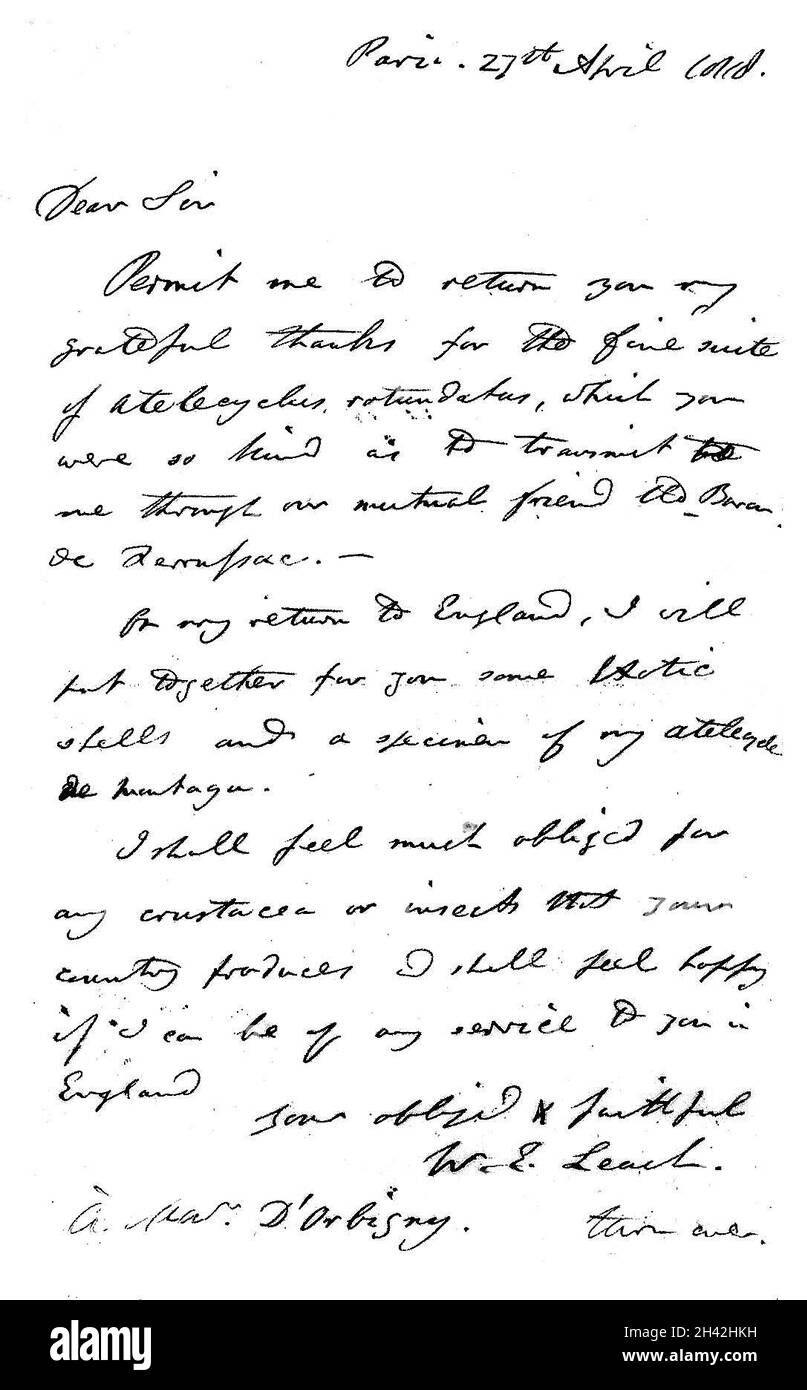 Paris. 27th April 1818.
Dear Sir
Permit me to return you my
grateful thanks for the fine suite
of Atelecyclus rotundatus, which you
were so kind as to transmit to
me through our mutual friend the Baron
de Ferussac. —
On my return to England, I will
put together for you some Exotic
shells and a specimen of my atelecycle
de montagu.
I shall feel much obliged for
any crustacea or insects that your
country produces I shall feel happy
if I can be of any service to you in
England
your obliged & faithful
W. E. Leach.
à D'Orbigny.
turn over.
alamy
Image ID: 2H42HKH
www.alamy.com